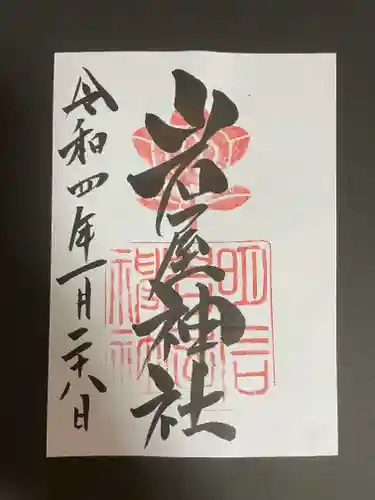 岩屋神社
令和四年一月二十八日